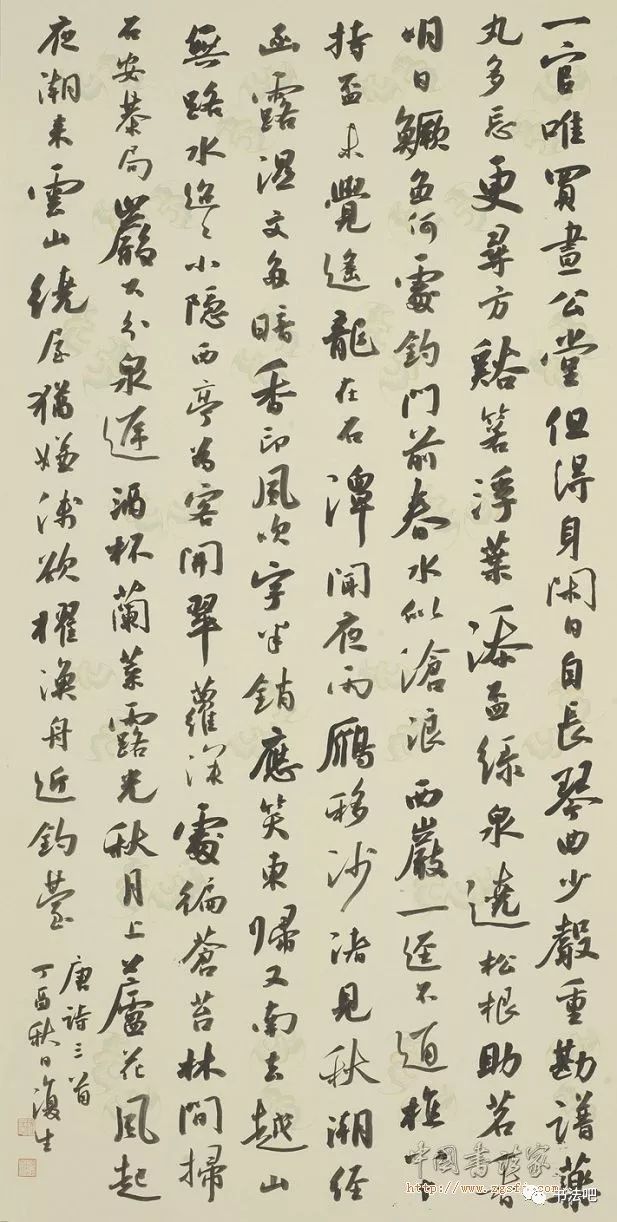 一官唯買晝公堂但得身閑日自長琴曲少聲重勘譜藥
丸多忌更尋方谿箬浮葉添盃綠泉遶松根助茗香
明日鱖魚何處釣門前春水似滄浪西巖一徑不通樵
持盃未覺遙龍在石潭聞夜雨鴈移沙渚見秋潮徑
函露濕文多暗香印風吹字半銷應笑東歸又南去越山
無路水迢〻小隱西亭為客開翠蘿深處徧蒼苔林間掃
石安棊局巖下分泉遞酒杯蘭葉露光秋月上蘆花風起
夜潮來雲山繞屋猶嫌淺欲棹漁舟近釣臺
唐詩三首
丁酉秋日復生
中国书法家
http://www.zgsfj.com
书法吧